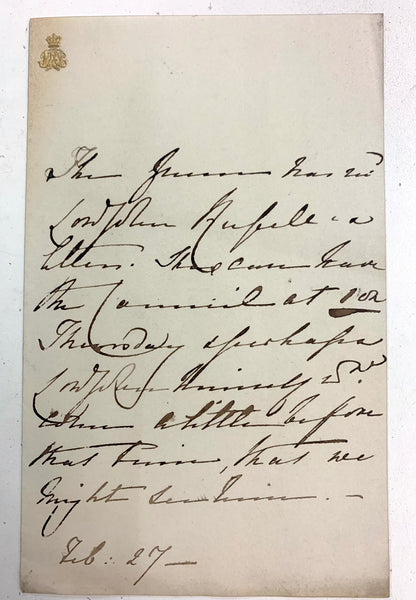 The Queen has recd
Lord John Russell's
letter. She can have
the Council at 1 on
Thursday & perhaps
Lord John himself wd
come a little before
that time, that we
might see him. –
Feb: 27 –